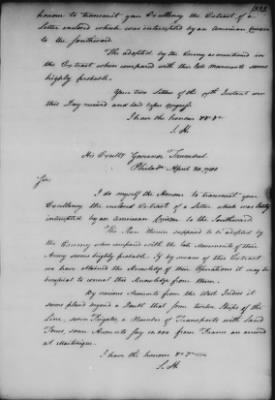 honour to transmit your Excellency the Extract of a
Letter enclosed which was intercepted by an American Cruiser
to the Southward.
The adopted by the Enemy as mentioned in
the Extract when compared with their late Movements seems
highly probable.
Your two Letters of the 17th Instant were
this Day received and laid before Congress.
I have the honour &c &c
S. H.
His Excelly Governor Trumbull
Philada April 20, 1781
Sir,
I do myself the Honour to transmit your
Excellency the enclosed Extract of a Letter which was lately
intercepted by an American Cruiser to the Southward.
The Plan therein supposed to be adopted by
the Enemy when compared with the late Movements of their
Army seems highly probable. If by means of this Extract
we have obtained the Knowledge of their Operations it may be
hurtful to conceal this Knowledge from them.
By various Accounts from the West Indies it
seems placed beyond a Doubt that from twelve Ships of the
Line, some Frigates, a Number of Transports with Land
Forces, some Accounts say 10,000 from France are arrived
at Martinique.
I have the honour &c &c
S. H.